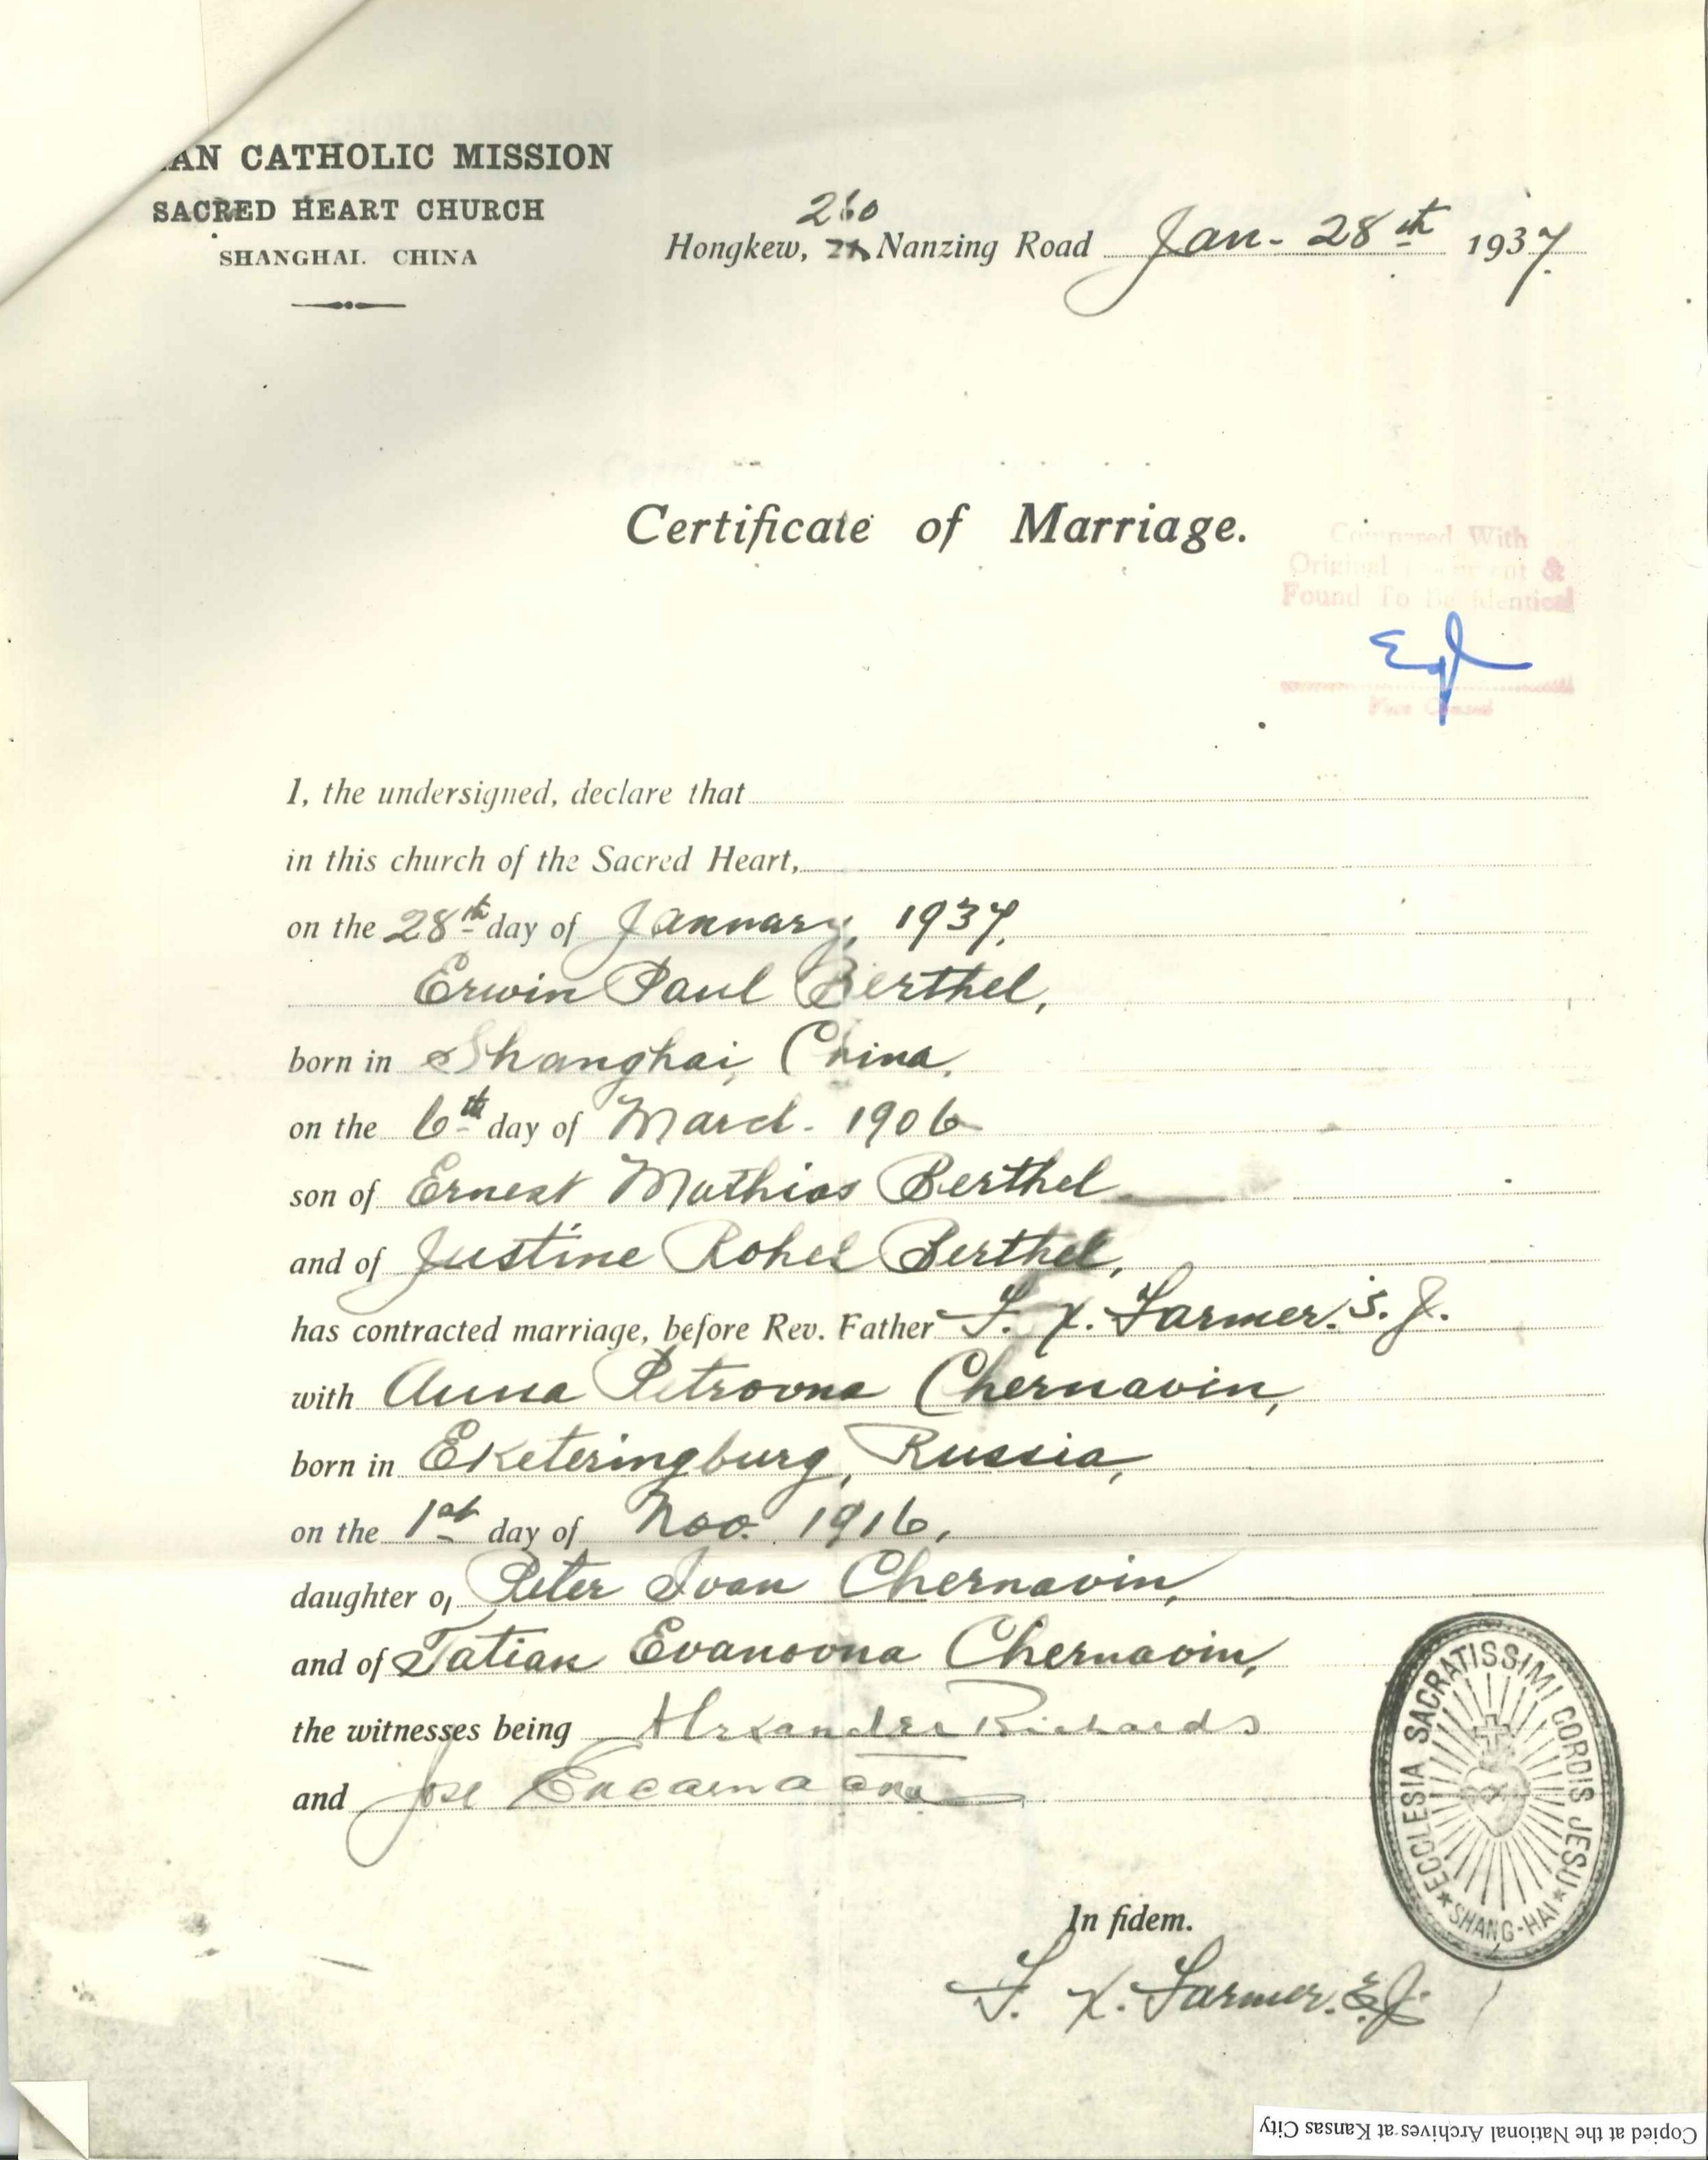 AN CATHOLIC MISSION
SACRED HEART CHURCH
SHANGHAI. CHINA
260
Hongkew, Nanzing Road Jan- 28th 1937.
Certificate of Marriage.
Compared With
Original Document &
Found To Be Identical
Vice Consul
I, the undersigned, declare that
in this church of the Sacred Heart,
on the 28th day of January, 1937,
Erwin Paul Berthel,
born in Shanghai, China,
on the 6th day of March. 1906
son of Ernest Mathias Berthel
and of Justine Rohel Berthel,
has contracted marriage, before Rev. Father F. X. Farmer. S. J.
with Anna Petrovna Chernavin,
born in Eketeringburg, Russia,
on the 1st day of Nov. 1916,
daughter of Peter Ivan Chernavin,
and of Tatian Evanovna Chernavin,
the witnesses being Alexander Richards
and Jose
ECCLESIA SACRATISSIMI CORDIS JESU
SHANG-HAI
In fidem.
F. X. Farmer. S.J.
Copied at the National Archives at Kansas City